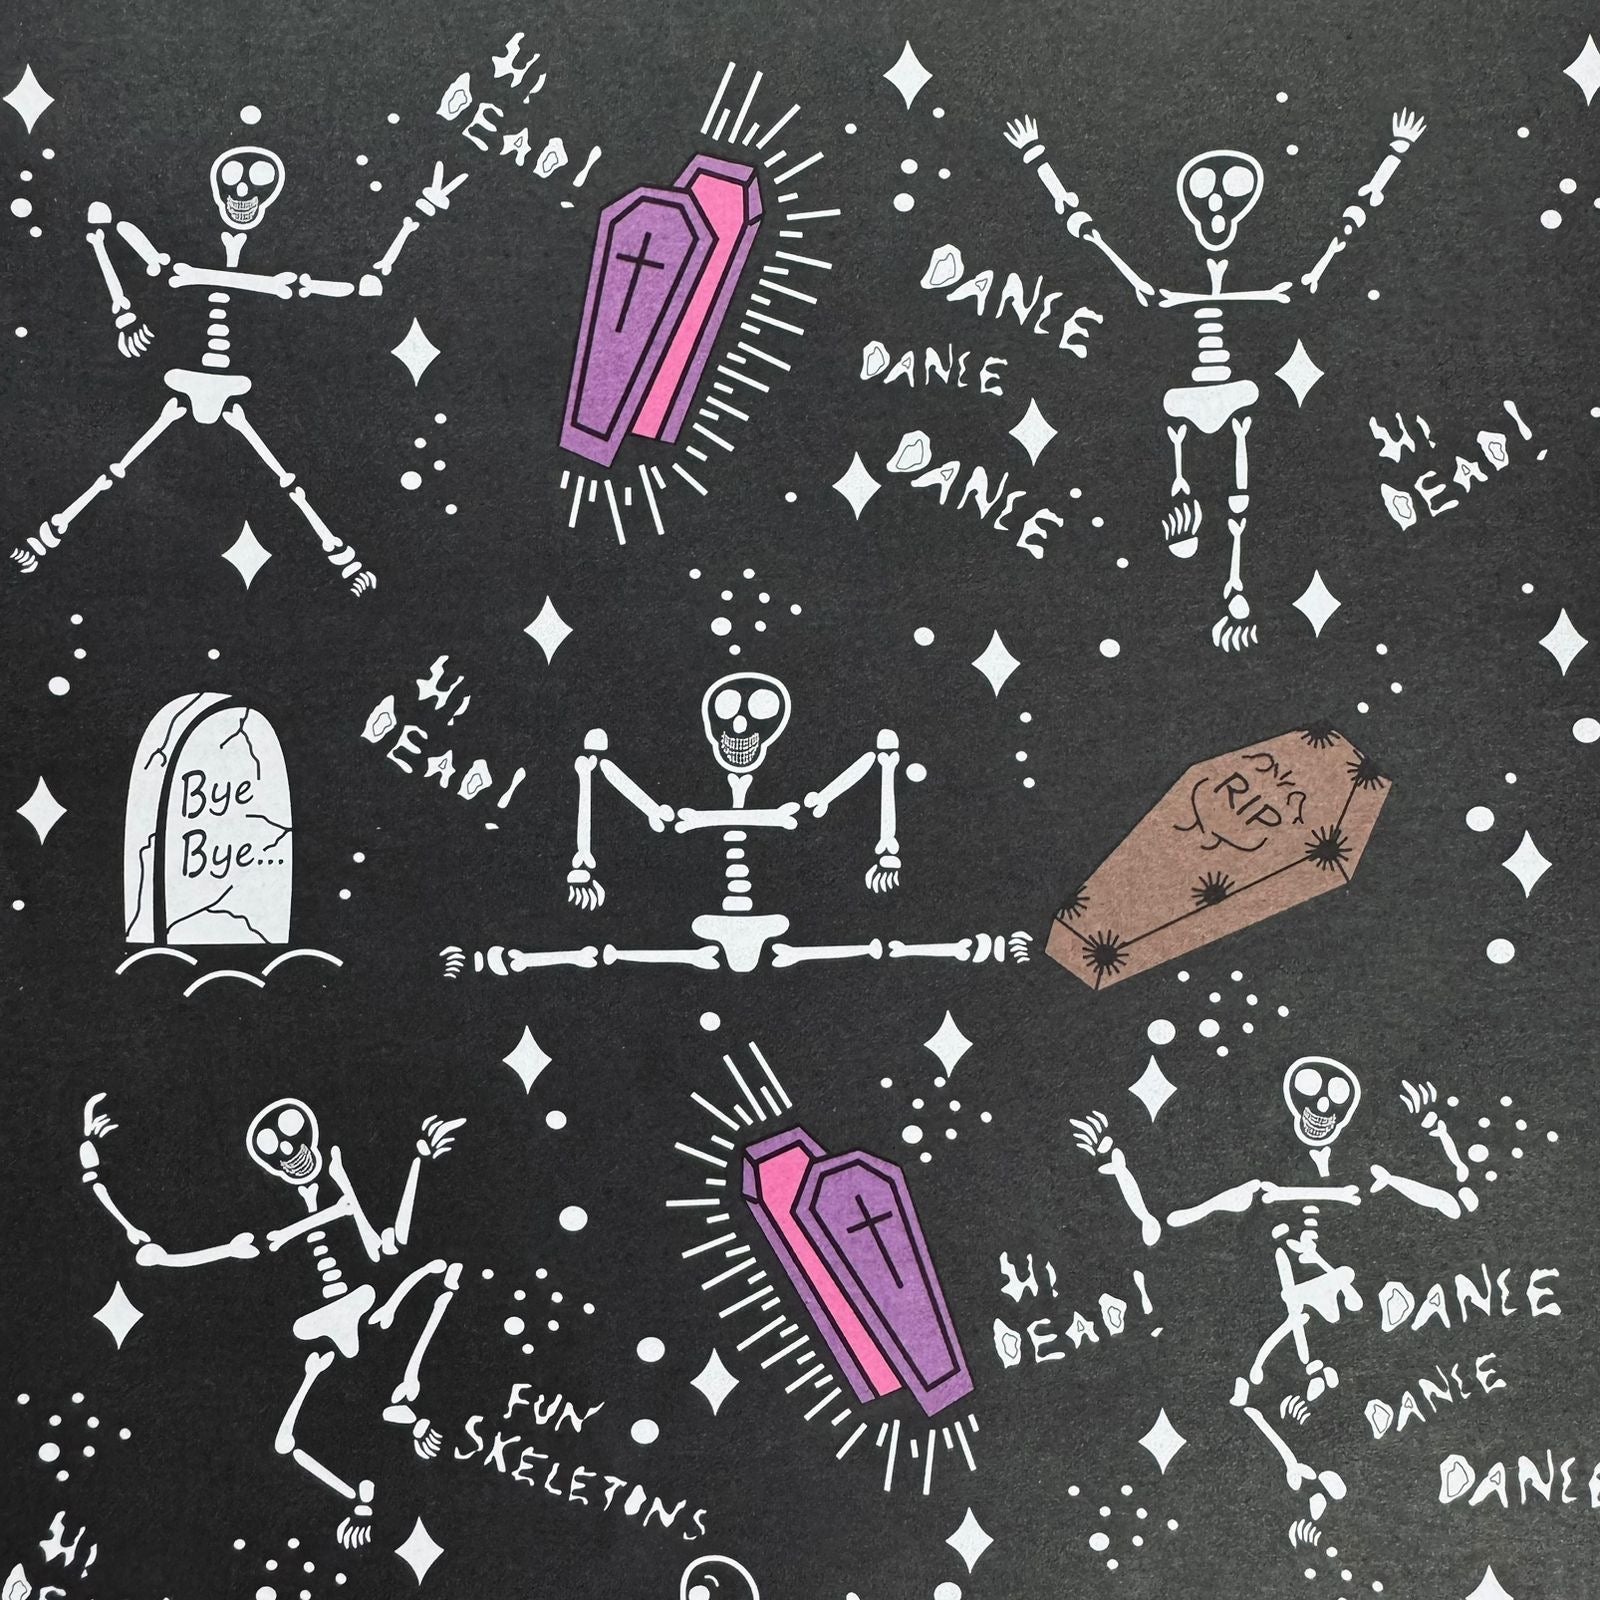 Hi!
DEAD!
DANCE
DANCE
DANCE
Hi!
DEAD!
Hi!
DEAD!
Bye
Bye...
RIP
Hi!
DEAD!
DANCE
DANCE
DANCE
FUN
SKELETONS
Hi!